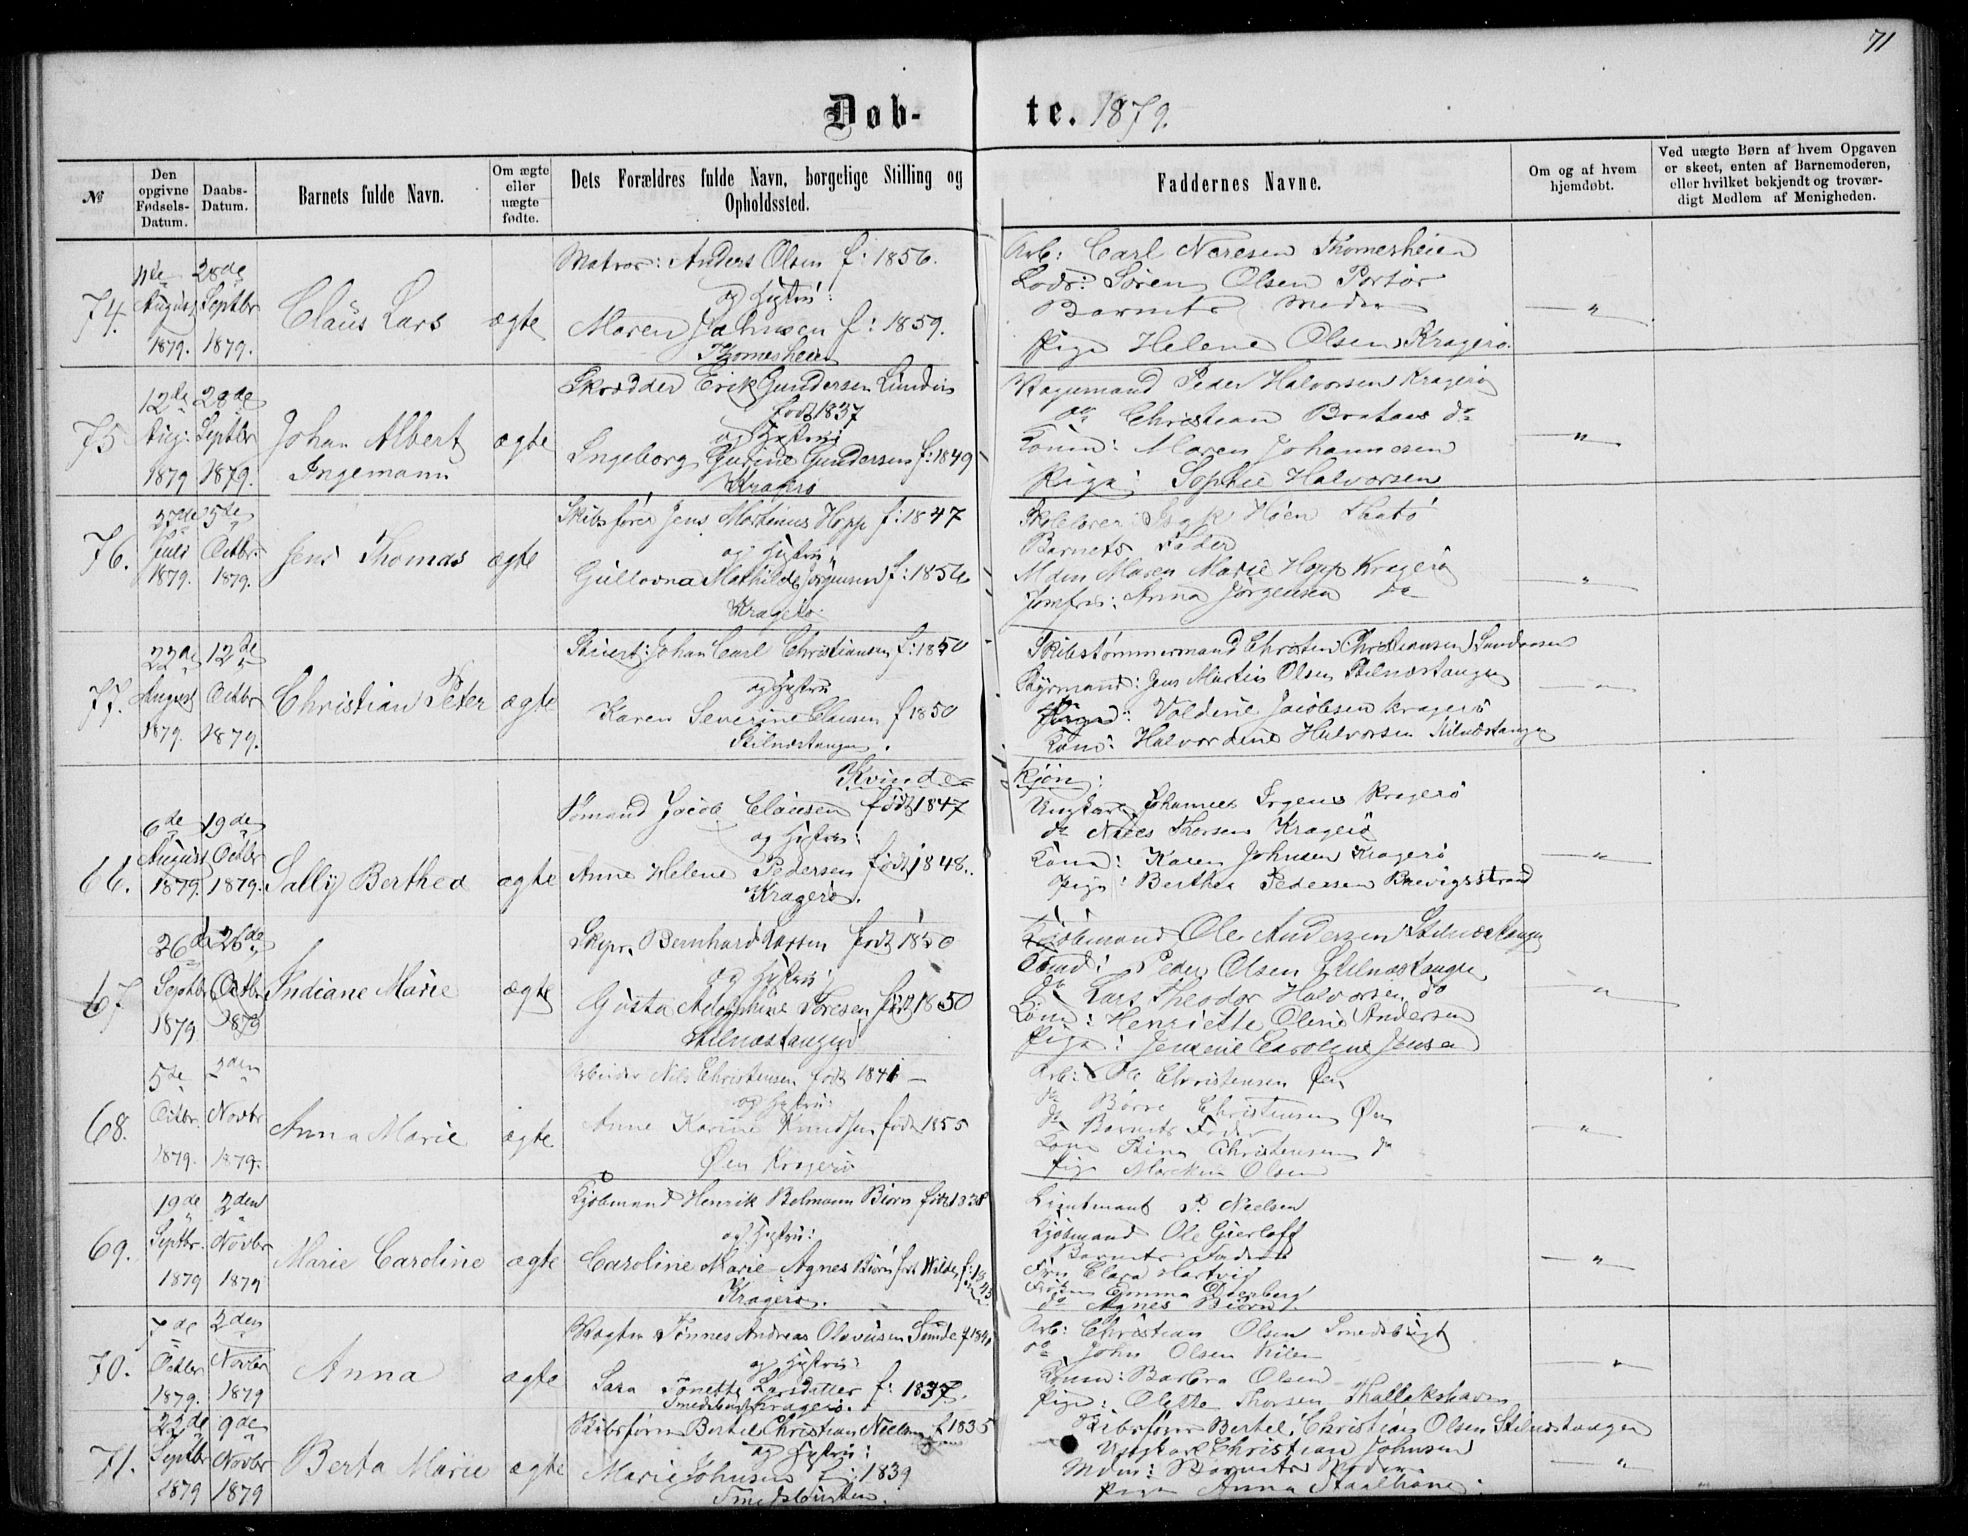 71
Døb-
te. 1879.
№
Den opgivne Fødsels-Datum.
Daabs-Datum.
Barnets fulde Navn.
Om ægte eller uægte fødte.
Dets Forældres fulde Navn, borgelige Stilling og Opholdssted.
Faddernes Navne.
Om og af hvem hjemdøbt.
Ved uægte Børn af hvem Opgaven er skeet, enten af Barnemoderen, eller hvilket bekjendt og troværdigt Medlem af Menigheden.
74.
11te August 1879.
28de Septbr 1879.
Claus Lars
ægte
Matros: Anders Olsen f: 1856.
og Hustru:
Maren Johnsen f: 1859.
Thomesheien
Arb: Carl Neresen Thomesheien
Lods: Søren Olsen Portør
Barnets Moder
Pige Helene Olsen Kragerø.
— „ —
75
12te Aug: 1879
28de Septbr 1879.
Johan Albert
Ingemann
ægte
Skrædder Erik Gundersen Lunden
født 1837
og Hustru
Ingeborg Gurine Gundersen f: 1849
Kragerø
Peder Halvorsen Kragerø
do Christian Brataas do
Konen: Maren Johannesen
Pige: Sophie Halvorsen
— „ —
76.
27de Juli 1879.
5te Octbr. 1879.
Jens Thomas
ægte
Skibsfører Jens Martinus Hopp f: 1847
og Hustru:
Gullovna Mathilde Jørgensen f: 1856
Kragerø
Skolelærer: Høen Skaatø
Barnets Fader
Mdm Maren Marie Hopp Kragerø
Jomfru: Anna Jørgensen do
— „ —
77.
22de August 1879.
12te Octbr 1879.
Christian Peter
ægte
Stuert: Johan Carl Christiansen f: 1850
og Hustru
Karen Severine Clausen f 1850
Stilnæstangen.
Skibstømmermand Christen Christiansen
Styrmand: Jens Martin Olsen Stilnæstangen
Pige: Valdine Jacobsen Kragerø
Kone: Halvordine Halvorsen Stilnæstangen
— „ —
Kvinde-
kjøn:
66.
6de August 1879.
19de Octbr 1879.
Sally Berthea
ægte
Sømand Jacob Clausen født 1847
og Hustru:
Anne Helene Pedersen født 1848.
Kragerø.
Ungkarl Johannes Kragerø
do Thorsen Kragerø
Kone: Karen Johnsen Kragerø
Pige: Berthea Pedersen Brevigsstrand
— „ —
67
26de Septbr 1879
26de Octbr 1879
Indiane Marie
ægte
Skipr. Bernhard Larsen født 1850
og Hustru:
Gusta Adolphine Toresen født 1850
Stilnæstangen
Kjøbmand Ole Andersen Stilnæstangen
Peder Olsen Stilnæstangen
do Lars Theodor Halvorsen do
Kone: Henriette Oline Andersen
Pige: Jensine Caroline Jensen
— „ —
68.
5te Octbr. 1879.
2den Novbr 1879.
Anna Marie
ægte
Arbeider Nils Christensen født 1841 —
og Hustru:
Anne Karine Knudsen født 1855
Øen Kragerø
Arb: Ole Christensen Øen
do Børre Christensen Øen
do Barnets Fader
Kone Stina Christensen do
Pige Olsen
— „ —
69.
19de Septbr. 1879
2den Novbr 1879
Marie Caroline
ægte
Kjøbmand Henrik Bolmann Biørn født 1838
og Hustru:
Caroline Marie Agnes Biørn født Wilde f: 1845
Kragerø.
Lieutenant P. Nielsen
Kjøbmand Ole Gierløff
Barnets Fader
Fru Clara Hartvig
Frøken Emma
do Agnes Biørn
— „ —
70.
7de Octbr 1879.
2den Novbr 1879
Anna
ægte
Vægter Tønnes Andreas Olavusen Sunde
og Hustru:
Sara Tonette Larsdatter f: 1837.
Smedsbugt Kragerø.
Arb: Christian Olsen Smedsbugt
do John Olsen Kilen
Konen: Barbra Olsen
Pige: Olette Thorsen Thallakshavn
— „ —
71.
22de Septbr 1879
9de Novbr 1879
Berta Marie
ægte
Skibsfører Bertel Christian Nielsen f 1835
og Hustru:
Marie Johnsen f: 1839
Smedsbugten.
Skibsfører Bertel Christian Olsen Stilnæstangen
Ungkarl Christian Johnsen
Mdm: Barnets Moder
Pige Anna Staalhane
— „ —